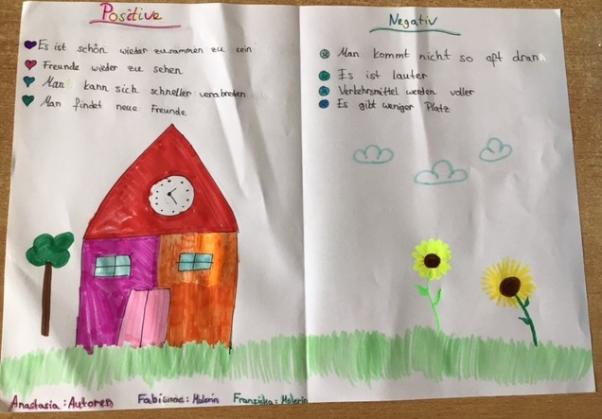 Positive
Es ist schön wieder zusammen zu sein
Freunde wieder zu sehen
Man kann sich schneller verabreden
Man findet neue Freunde
Negativ
Man kommt nicht so oft dran
Es ist lauter
Verkehrsmittel werden voller
Es gibt weniger Platz
Anastasia: Autoren Fabienne: Malerin Franziska: Malerin